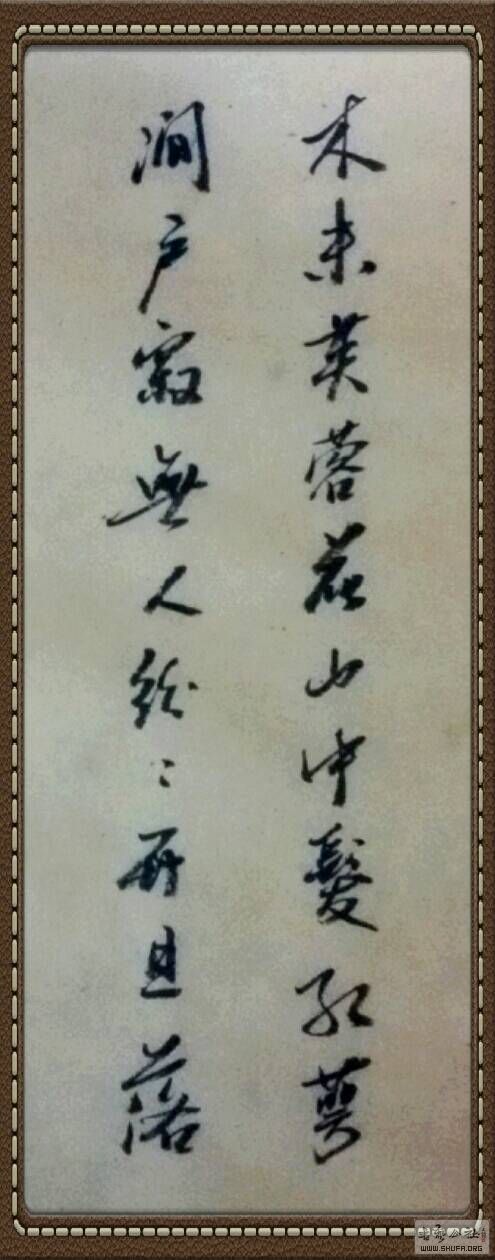 木末芙蓉花山中發紅萼
澗户寂無人紛〻開且落
WWW.SHUFA.ORG